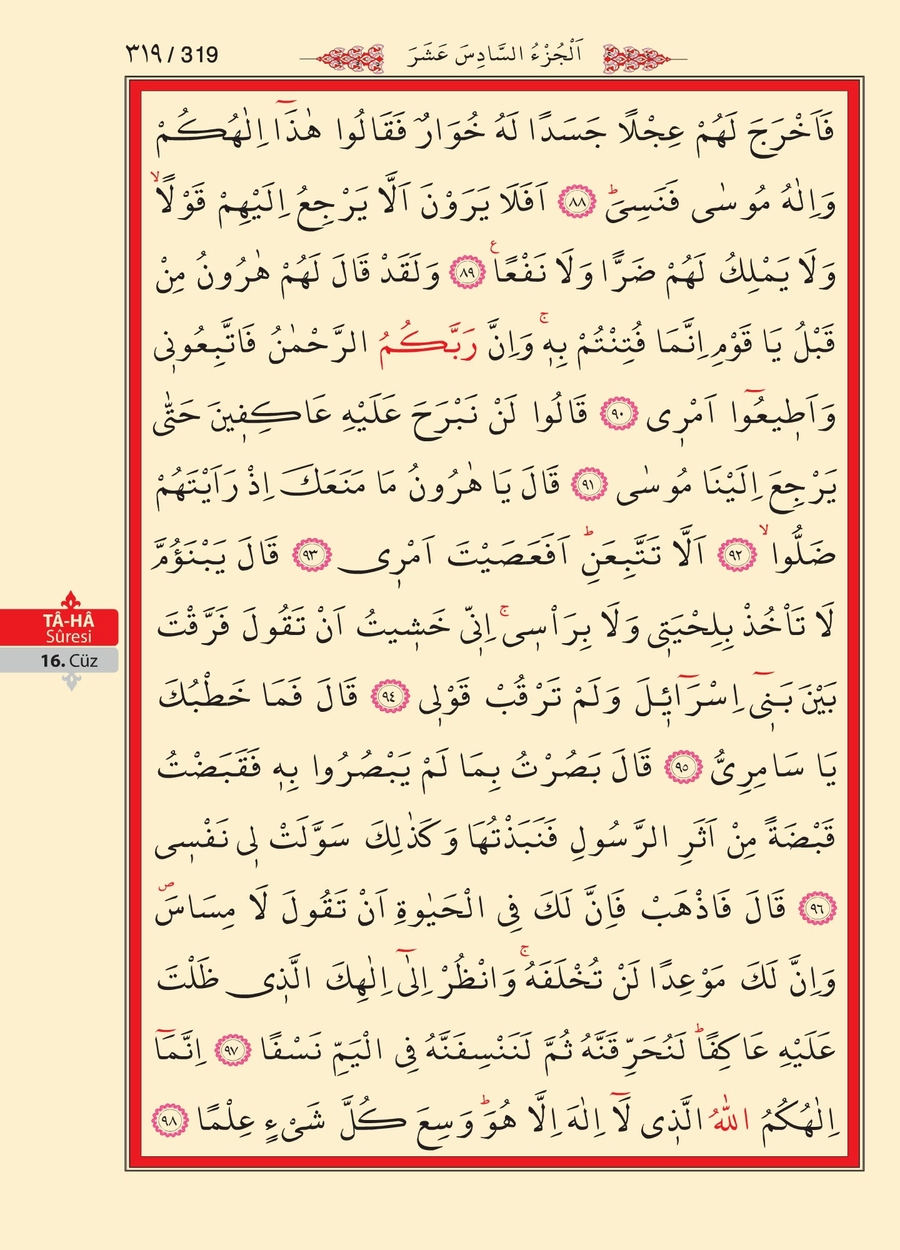 ٣١٩ / 319
اَلْجُزْءُ السَّادِسَ عَشَرَ
فَاَخْرَجَ لَهُمْ عِجْلًا جَسَدًا لَهُ خُوَارٌ فَقَالُوا هٰذَٓا اِلٰهُكُمْ
وَاِلٰهُ مُوسٰى فَنَسِيَۜ ﴿٨٨﴾ اَفَلَا يَرَوْنَ اَلَّا يَرْجِعُ اِلَيْهِمْ قَوْلًاۙ
وَلَا يَمْلِكُ لَهُمْ ضَرًّا وَلَا نَفْعًا۟ ﴿٨٩﴾ وَلَقَدْ قَالَ لَهُمْ هٰرُونُ مِنْ
قَبْلُ يَا قَوْمِ اِنَّمَا فُتِنْتُمْ بِه۪ۚ وَاِنَّ رَبَّكُمُ الرَّحْمٰنُ فَاتَّبِعُون۪ى
وَاَط۪يعُٓوا اَمْر۪ى ﴿٩٠﴾ قَالُوا لَنْ نَبْرَحَ عَلَيْهِ عَاكِف۪ينَ حَتّٰى
يَرْجِعَ اِلَيْنَا مُوسٰى ﴿٩١﴾ قَالَ يَا هٰرُونُ مَا مَنَعَكَ اِذْ رَاَيْتَهُمْ
ضَلُّواۙ ﴿٩٢﴾ اَلَّا تَتَّبِعَنِۜ اَفَعَصَيْتَ اَمْر۪ى ﴿٩٣﴾ قَالَ يَبْنَؤُمَّ
لَا تَأْخُذْ بِلِحْيَت۪ى وَلَا بِرَأْس۪ىۚ اِنّ۪ى خَش۪يتُ اَنْ تَقُولَ فَرَّقْتَ
بَيْنَ بَن۪ٓى اِسْرَٓائ۪لَ وَلَمْ تَرْقُبْ قَوْل۪ى ﴿٩٤﴾ قَالَ فَمَا خَطْبُكَ
يَا سَامِرِىُّ ﴿٩٥﴾ قَالَ بَصُرْتُ بِمَا لَمْ يَبْصُرُوا بِه۪ فَقَبَضْتُ
قَبْضَةً مِنْ اَثَرِ الرَّسُولِ فَنَبَذْتُهَا وَكَذٰلِكَ سَوَّلَتْ ل۪ى نَفْس۪ى
﴿٩٦﴾ قَالَ فَاذْهَبْ فَاِنَّ لَكَ فِى الْحَيٰوةِ اَنْ تَقُولَ لَا مِسَاسَۖ
وَاِنَّ لَكَ مَوْعِدًا لَنْ تُخْلَفَهُۚ وَانْظُرْ اِلٰٓى اِلٰهِكَ الَّذ۪ى ظَلْتَ
عَلَيْهِ عَاكِفًاۜ لَنُحَرِّقَنَّهُ ثُمَّ لَنَنْسِفَنَّهُ فِى الْيَمِّ نَسْفًا ﴿٩٧﴾ اِنَّمَٓا
اِلٰهُكُمُ اللّٰهُ الَّذ۪ى لَٓا اِلٰهَ اِلَّا هُوَۜ وَسِعَ كُلَّ شَىْءٍ عِلْمًا ﴿٩٨﴾
TÂ-HÂ
Sûresi
16. Cüz